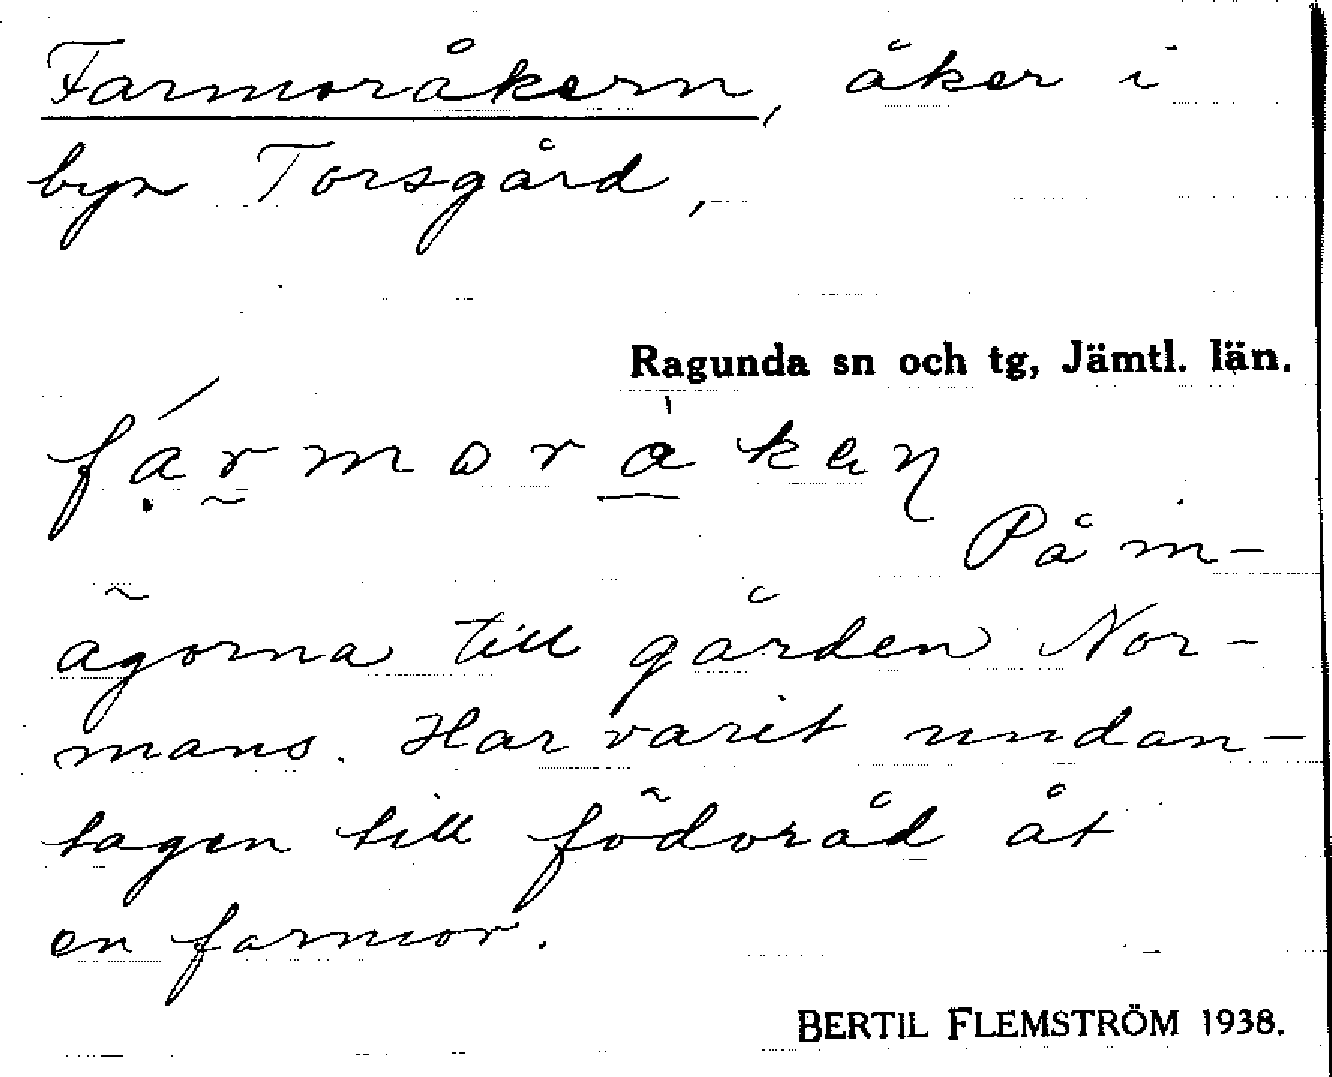 Farmoråkern, åker i
byn Torsgård,
Ragunda sn och tg, Jämtl. län.
På in-
ägorna till gården Nor-
mans. Har varit undan-
tagen till födoråd åt
en farmor.
BERTIL FLEMSTRÖM 1938.